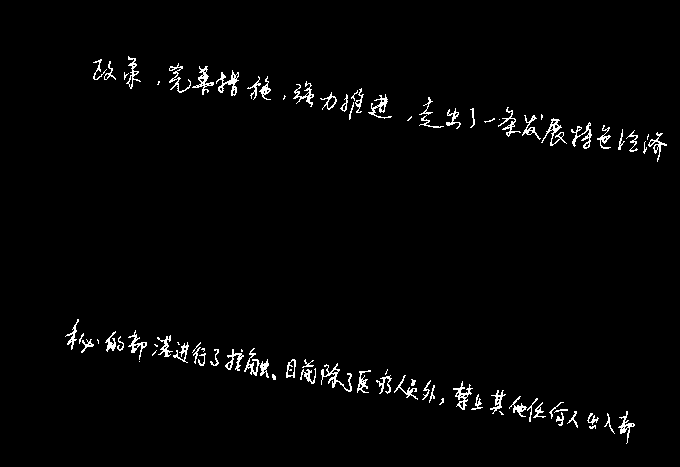 政策，完善措施，强力推进，走出了一条发展特色经济
秘的部落进行了接触。目前除了医疗人员外，禁止其他任何人出入部